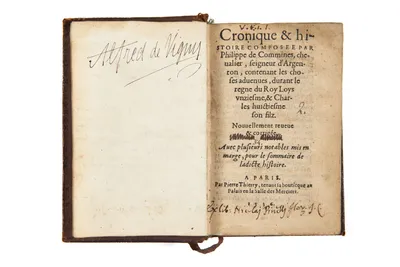 Alfred de Vigny
Cronique & hi-
STOIRE COMPOSEE PAR
Philippe de Commines, che-
ualier, seigneur d'Argen-
ton, contenant les cho-
ses aduenues, durant le
regne du Roy Loys
vnziesme, & Char-
les huictiesme
son filz.
2.
Nouuellement reueue
& corrigée
Auec plusieurs notables mis en
marge, pour le sommaire de
ladicte histoire.
A PARIS.
Par Pierre Thierry, tenant sa boutisque au
Palais en la Salle des Merciers.
Ex lib.